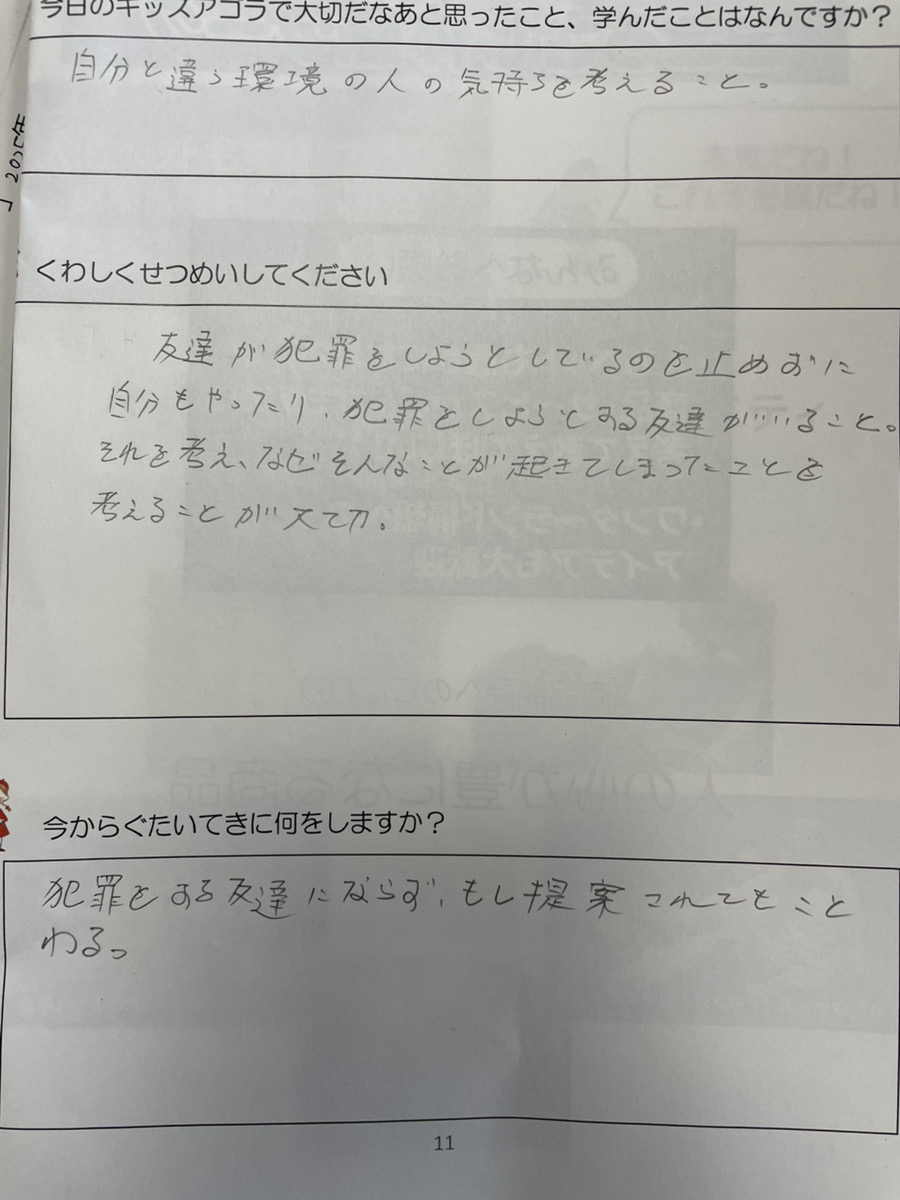 今日のキッズアゴラで大切だなあと思ったこと、学んだことはなんですか？
自分と違う環境の人の気持ちを考えること。
くわしくせつめいしてください
友達が犯罪をしようとしているのを止めずに
自分もやったり、犯罪をしようとする友達がいること。
それを考え、なぜそんなことが起きてしまったことを
考えることが大切。
今からぐたいてきに何をしますか？
犯罪をする友達にならず、もし提案されてもこと
わる。
11